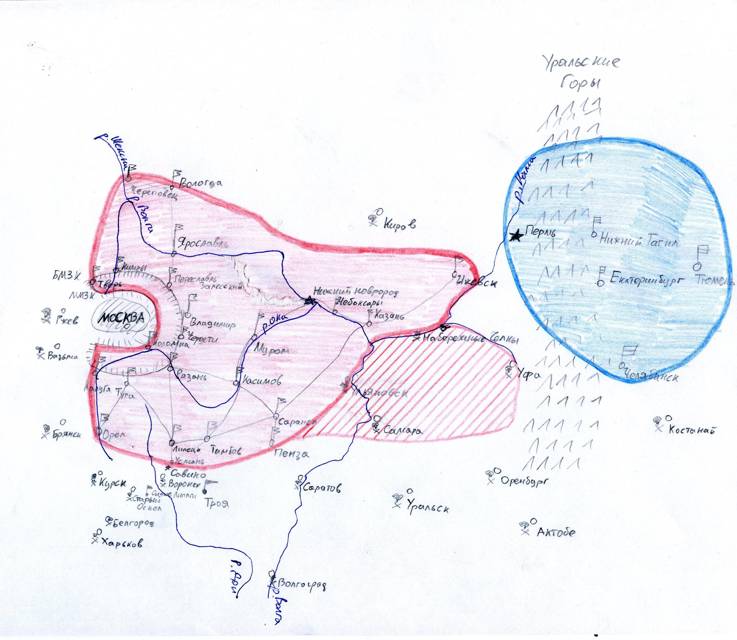 Уральские
Горы
р. Шексна
Череповец
Вологда
р. Волга
р. Кама
Киров
Ярославль
Пермь
Нижний Тагил
БМЗК
Тверь
Кимры
Переславль
Залесский
Ижевск
Екатеринбург
Тюмень
ЛМЗК
Нижний Новгород
Чебоксары
Казань
Ржев
МОСКВА
Владимир
р. Ока
Вязьма
Коломна
Муром
Набережные Челны
Калуга
Тула
Рязань
Касимов
Уфа
Челябинск
Ульяновск
Саранск
Брянск
Орёл
Липецк
Тамбов
Пенза
Самара
Костанай
Усмань
Савино
Курск
Воронеж
Старый
Оскол
Троя
Саратов
Оренбург
Уральск
Белгород
Актобе
Харьков
р. Дон
Волгоград
р. Волга